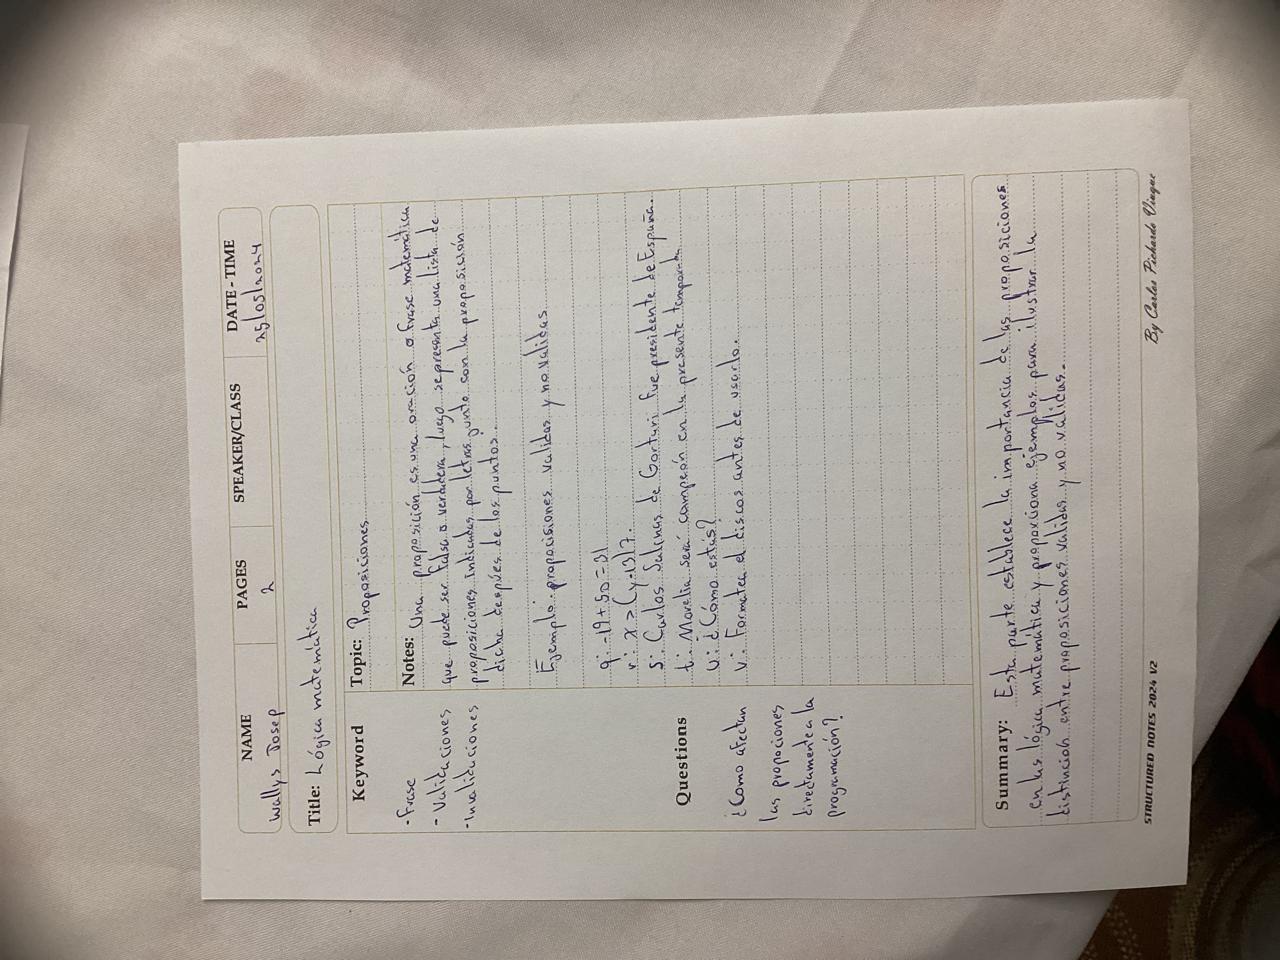 NAME PAGES SPEAKER/CLASS DATE-TIME
Wallys Josep 2 25/05/2024
Title: Lógica matemática
Keyword
- Frase
- Validaciones
- Invalidaciones
Topic: Proposiciones
Notes: Una proposición es una oración o frase matemática
que puede ser falsa o verdadera, luego se presenta una lista de
proposiciones Indicadas por letras junto con la proposición
dicha despúes de los puntos:
Ejemplo: propocisiones validas y no validas
q: -19+50=31
r: x>(y-13)7.
s: Carlos Salinas de Gortari fue presidente de España.
t: Morelia será campeón en la presente temporada
u: ¿Cómo estás?
v: Formatea el discos antes de usarlo.
Questions
¿Como afectan
las propociones
directamente a la
programación?
Summary: Esta parte establece la importancia de las proposiciones
en las lógica matemática y proporciona ejemplos para ilustrar la
distinción entre proposiciones validas y no validas.
STRUCTURED NOTES 2024 V2 By Carlos Pichardo Viuque